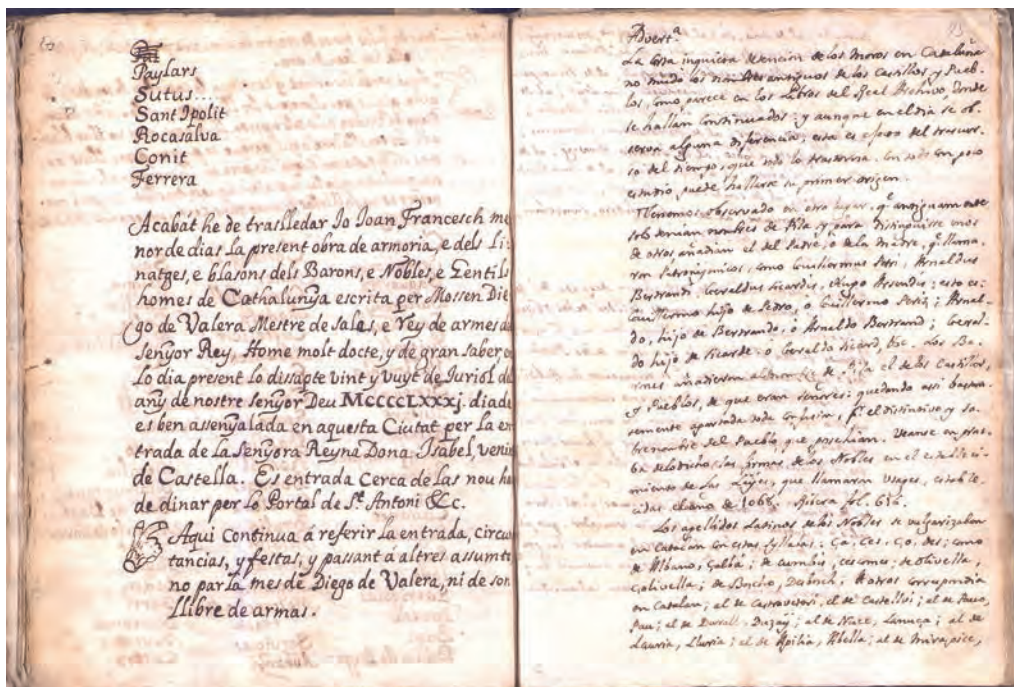 Paylars
Sutus...
Sant Ipolit
Rocasalva
Conit
Ferrera
Acabat he de traslledar Jo Joan Francesch me
nor de dias la present obra de armoria, e dels Li-
natges, e blasons dels Barons, e Nobles, e Gentils
homes de Cathalunya escrita per Mossen Die
go de Valera Mestre de sales, e Rey de armes de
senyor Rey, Home molt docte, y de gran saber
Lo dia present Lo dissapte vint y vuyt de Juriol de
any de nostre senyor Deu MCCCCLXXXj. diada
es ben assenyalada en aquesta Ciutat per la en
trada de la senyora Reyna Dona Isabel, venin
de Castella. Es entrada Cerca de las nou ho
de dinar per lo Portal de St. Antoni &c.
Aqui Continua á referir la entrada, circu
tancias, y festas, y passant á altres assumta
no parla mes de Diego de Valera, ni de son
Llibre de armas.
Advert.ª
La Cosa inquieta de los Moros en Cataluña
no mudó los nombres antiguos de los Castillos y Pueb-
los, como parece en los Libros del Real Archivo, donde
se hallan Continuados: y aunque en el dia se ob-
serva alguna diferencia, esta es efecto del trascur-
so del tiempo, que todo lo trastorna. Con todo Con poco
estudio, puede hallarse su primer origen.
Tenemos observado en otro lugar, q.e antiguamente
solo tenian nombres de Pila, y para distinguirse unos
de otros añadian el del Padre, o de la Madre, q.e llama-
ron Patronymicos, como Guillermus Petri, Arnaldus
Bertrandi, Geraldus Ricardus, Hugo esto es:
Guillermo hijo de Pedro, ò Guillermo Perez; Arnal-
do, hijo de Bertrando, ò Arnaldo Bertrand; Geral-
do hijo de Ricardo ò Geraldo Ricard, &c. Los Ba-
rones añadieron al nombre de Pila el de los Castillos,
y Pueblos, de que eran señores: quedando assi basta-
temente apartada toda Confusion, p.r el distintivo y so-
brenombre del Pueblo que posehian. Veanse en prue-
ba de lo dicho las firmas de los Nobles en el estableci-
miento de las Leyes, que llamaron Usages, estable-
cidas el año de 1068. fol. 616.
Los apellidos Latinos de los Nobles se vulgarizaban
en Catalan con estas syllabas: Ça, Ces, Ço, des; como
de Albano, Çalbá; de Cumbis, Cescoms; de olivella,
Çolivella; de Boscho, Dezbosch; A otros correspondia
en Catalan; al de el de Castellvi; al de Pavo,
Pau; al de Duzay; al de Nuce, Lanuça; al de
Lauria, Lluria; al de Apilia, Abella; al de